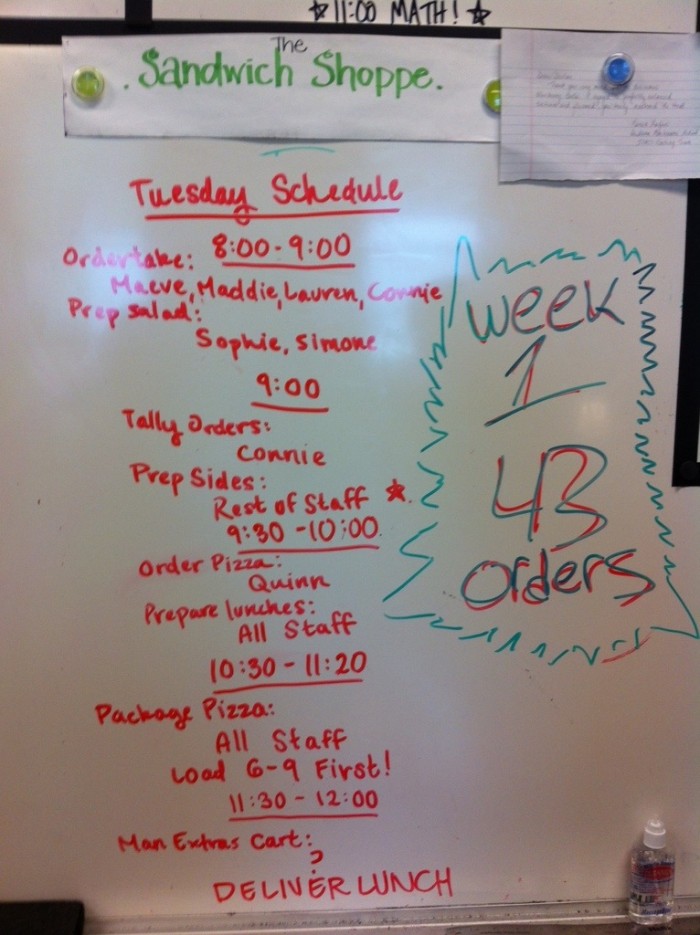 ☆11:00 MATH!☆
The
.Sandwich Shoppe.
Tuesday Schedule
8:00-9:00
Ordertake:
Maeve, Maddie, Lauren, Connie
Prep salad:
Sophie, Simone
9:00
Tally Orders:
Connie
Prep Sides:
Rest of Staff ★
9:30-10:00
Order Pizza:
Quinn
Prepare lunches:
All Staff
10:30-11:20
Package Pizza:
All Staff
Load 6-9 First!
11:30-12:00
Man Extras Cart:
?
DELIVER LUNCH
week
1
43
orders